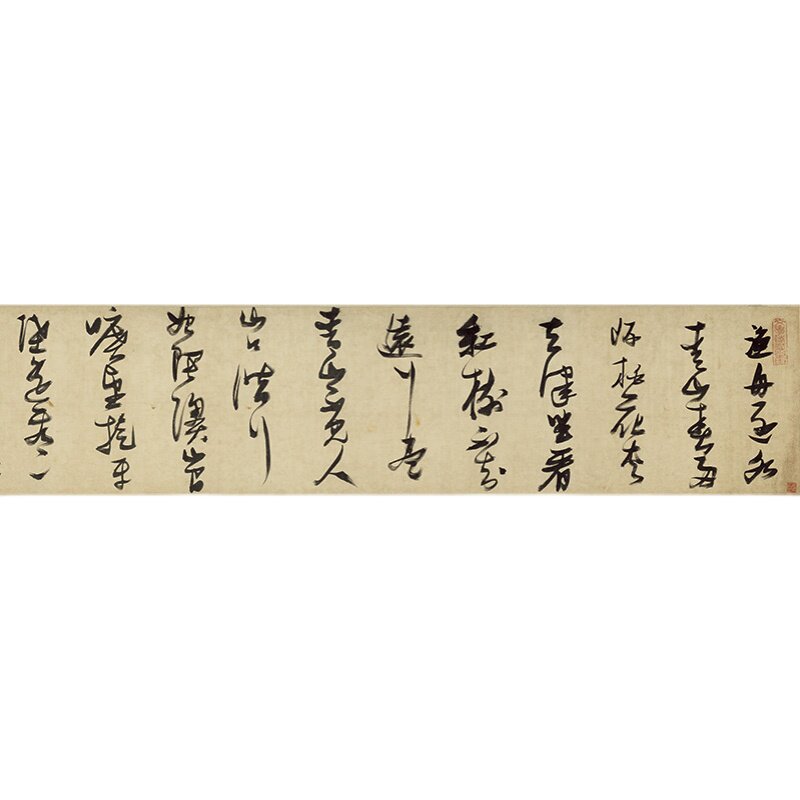 漁舟逐水
青山春兩
岸桃花夾
去津坐看
紅樹不知
遠行盡
青山不見人
山口潛行
始隈隩山開
曠望旋平
陸遙看一